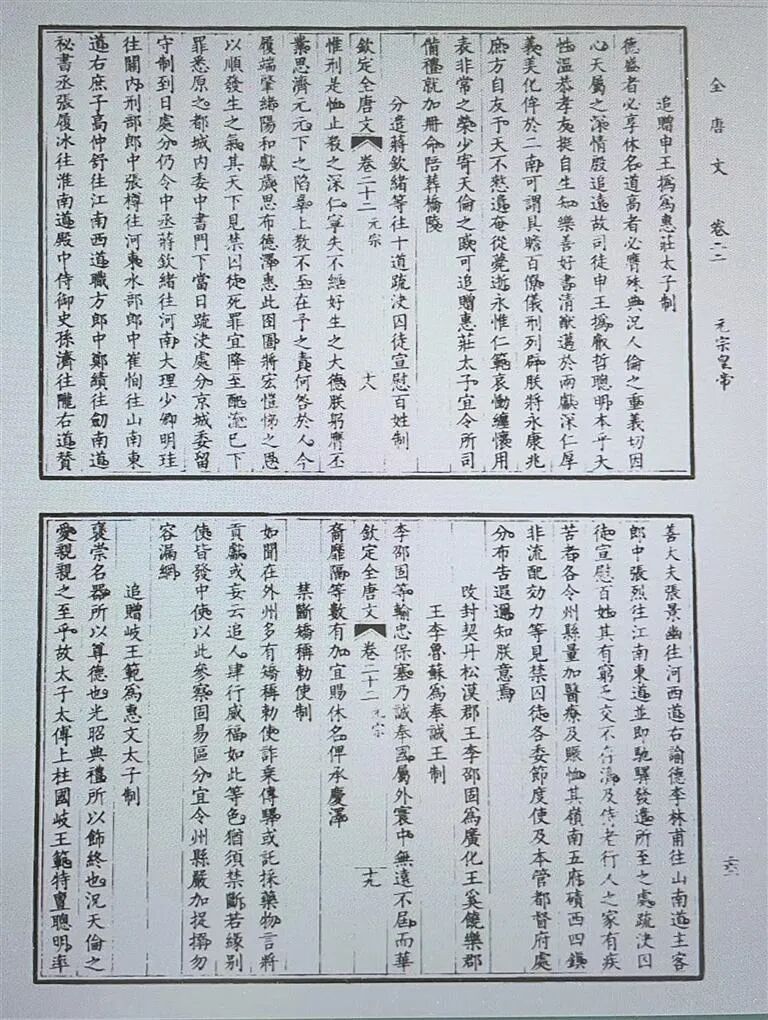 全唐文　卷二二　元宗皇帝
追贈申王撝為惠莊太子制
德盛者必享休名道高者必膺殊典況人倫之重義切因
心天屬之深情殷追遠故司徒申王撝厥哲聰明本乎大
性溫恭孝友挺自生知樂善好書清猷邁於兩獻深仁厚
義美化侔於二南可謂具瞻百僚儀刑列辟朕將永康兆
庶方自友于天不憖遺奄從薨逝永惟仁範哀慟纏懷用
表非常之榮少寄天倫之戚可追贈惠莊太子宜令所司
備禮就加冊命陪葬橋陵
分遣蔣欽緒等往十道疏決囚徒宣慰百姓制
欽定全唐文　卷二十二　元宗　十八
惟刑是恤止殺之深仁寧失不經好生之大德朕躬膺丕
業思濟元元下之陷辜上教不至在予之責何咎於人今
履端肇緒陽和獻歲思布德澤惠此囹圄將宏愷悌之恩
以順發生之氣其天下見禁囚徒死罪宜降至流流已下
罪悉原之都城內委中書門下當日疏決處分京城委留
守制到日處分仍令中丞蔣欽緒往河南大理少卿明珪
往關內刑部郎中張樽往河東水部郎中崔恂往山南東
道右庶子高仲舒往江南西道職方郎中鄭續往劍南道
祕書丞張履冰往淮南道殿中侍御史孫濟往隴右道贊
善大夫張景幽往河西道右諭德李林甫往山南道主客
郎中張烈往江南東道並即馳驛發遣所至之處疏決囚
徒宣慰百姓其有窮乏交不存濟及侍老行人之家有疾
苦者各令州縣量加醫療及賑恤其嶺南五府磧西四鎮
非流配效力等見禁囚徒各委節度使及本管都督府處
分布告遐邇知朕意焉
改封契丹松漠郡王李邵固為廣化王奚饒樂郡
王李魯蘇為奉誠王制
李邵固等輸忠保塞乃誠奉國屬外寰中無遠不屆而華
欽定全唐文　卷二十二　元宗　十九
裔靡隔等數有加宜賜休名俾承慶澤
禁斷矯稱敕使制
如聞在外州多有矯稱敕使詐乘傳驛或託採藥物言將
貢獻或妄云追人肆行威福如此等色猶須禁斷若緣別
使皆發中使以此參察固易區分宜令州縣嚴加捉搦勿
容漏網
追贈岐王範為惠文太子制
褒崇名器所以尊德也光昭典禮所以飾終也況天倫之
愛親親之至乎故太子太傅上柱國岐王範特亶聰明率